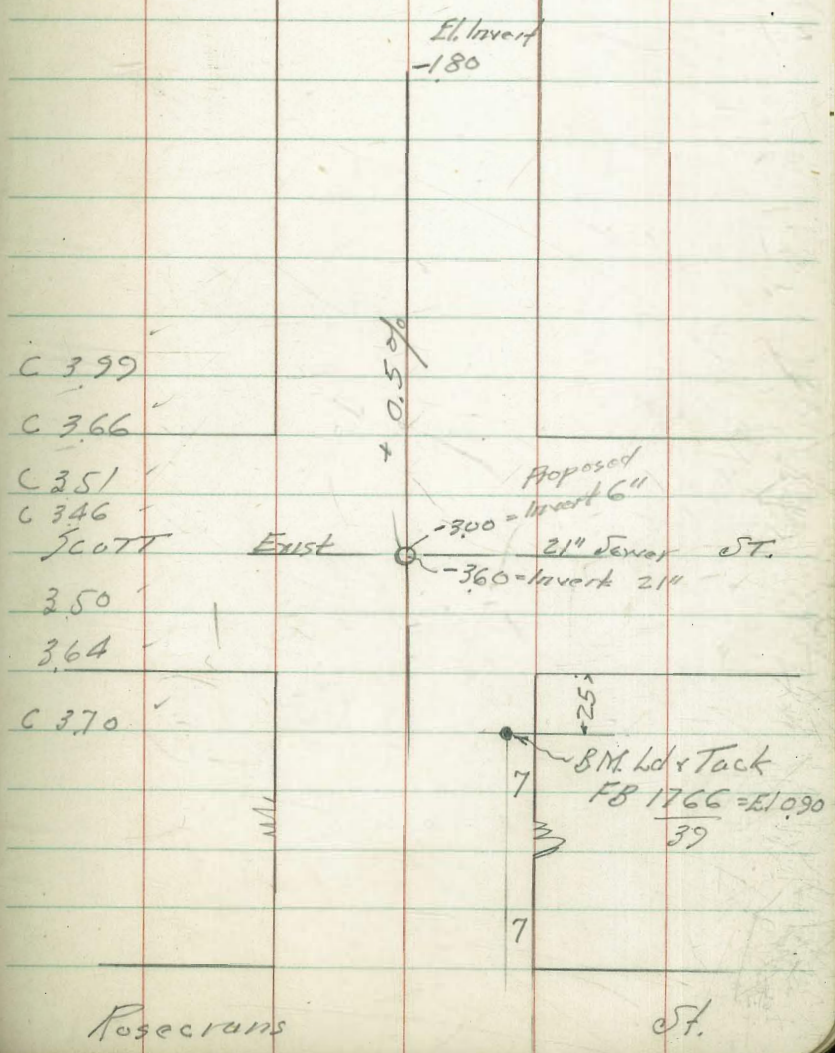 El. Invert
-1.80
+ 0.5%
C 3.99
C 3.66
C 3.51
C 3.46
Proposed
-3.00 = Invert 6"
SCOTT Exist 21" Sewer ST.
-3.60 = Invert 21"
3.50
3.64
25
C 3.70
B.M. Ld & Tack
7
FB 1766 = El 0.90
39
7
Rosecrans St.